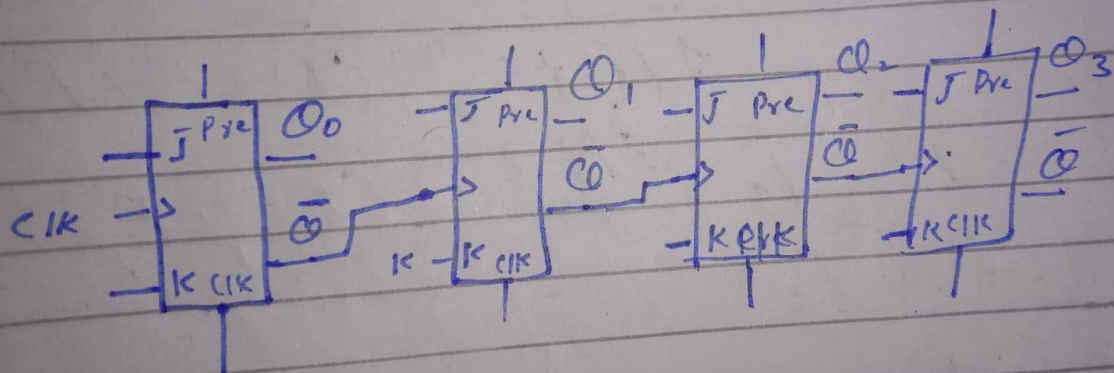 J Pre Q0
Clk Q̄
K Clk
J Pre Q1
Q̄
K K Clk
J Pre Q2
Q̄
K
J Pre Q3
Q̄
K Clk